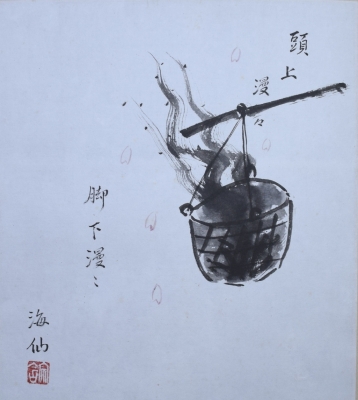 頭上漫々
脚下漫〻
海仙